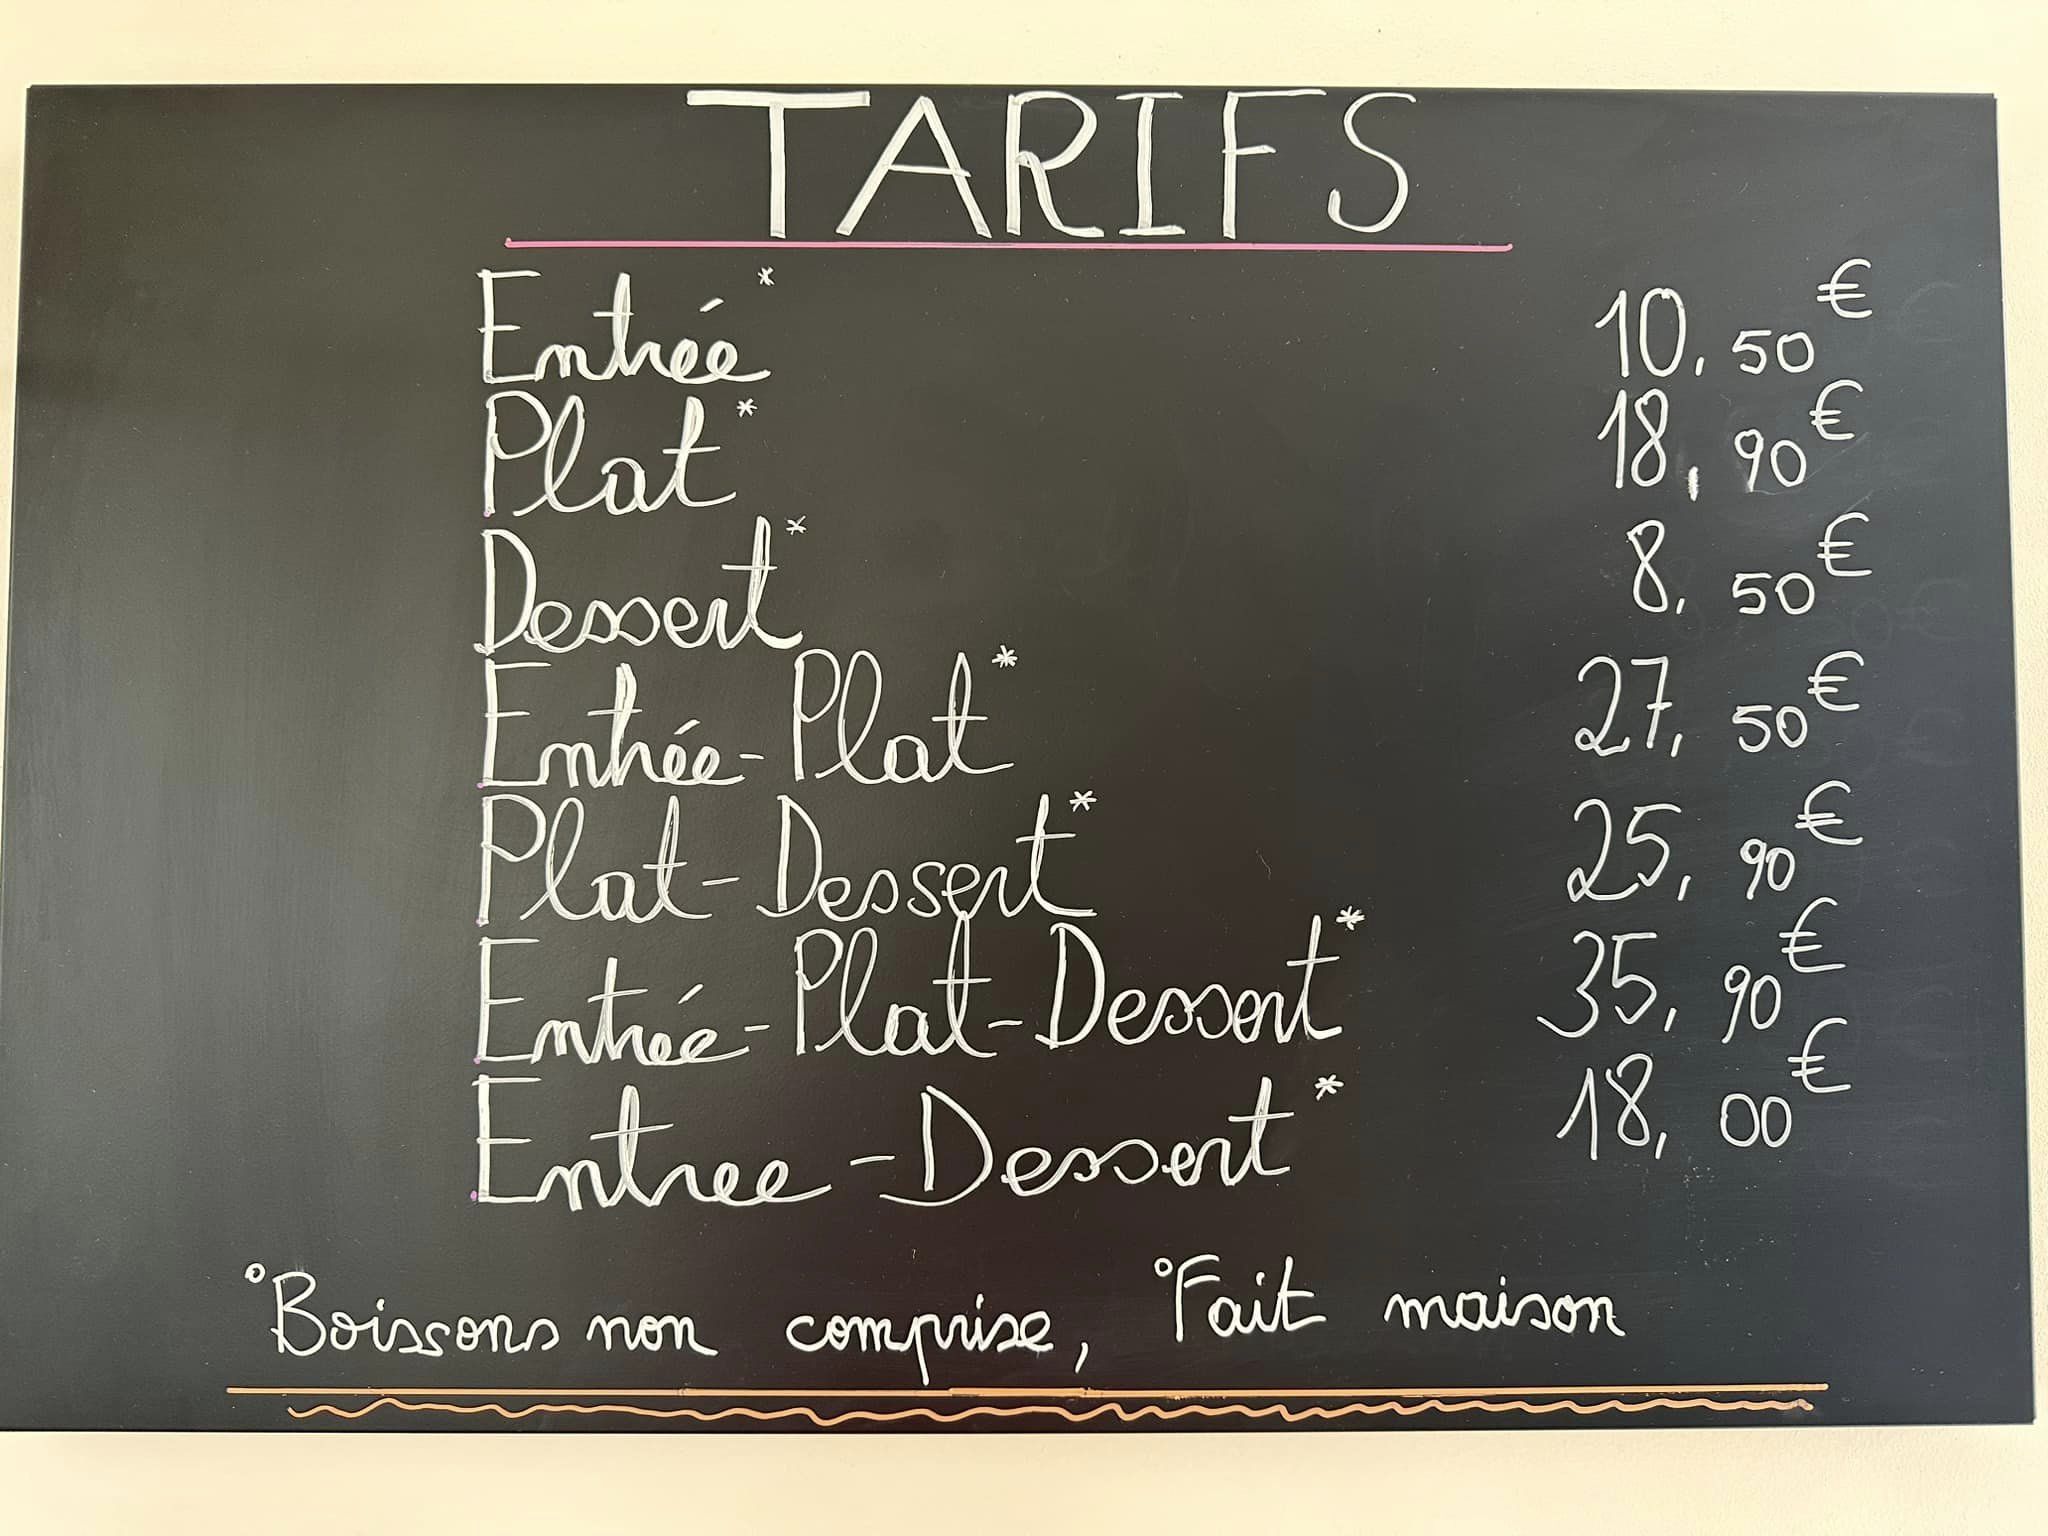 TARIFS
Entrée* 10,50€
Plat* 18,90€
Dessert* 8,50€
Entrée-Plat* 27,50€
Plat-Dessert* 25,90€
Entrée-Plat-Dessert* 35,90€
Entree-Dessert* 18,00€
°Boissons non comprise, °Fait maison